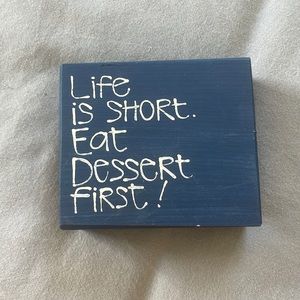 Life
is SHORT.
Eat
Dessert
First!